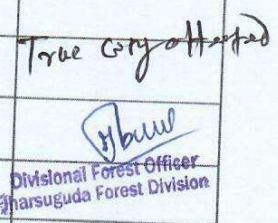 True copy attested
Divisional Forest Officer
Jharsuguda Forest Division